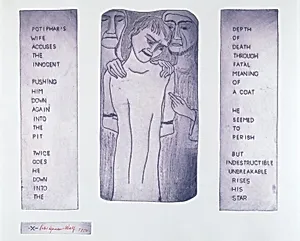 POTIPHAR'S
WIFE
ACCUSES
THE
INNOCENT
PUSHING
HIM
DOWN
AGAIN
INTO
THE
PIT
TWICE
DOES
HE
DOWN
INTO
THE
DEPTH
OF
DEATH
THROUGH
FATAL
MEANING
OF
A COAT
HE
SEEMED
TO
PERISH
BUT
INDESTRUCTIBLE
UNBREAKABLE
RISES
HIS
STAR